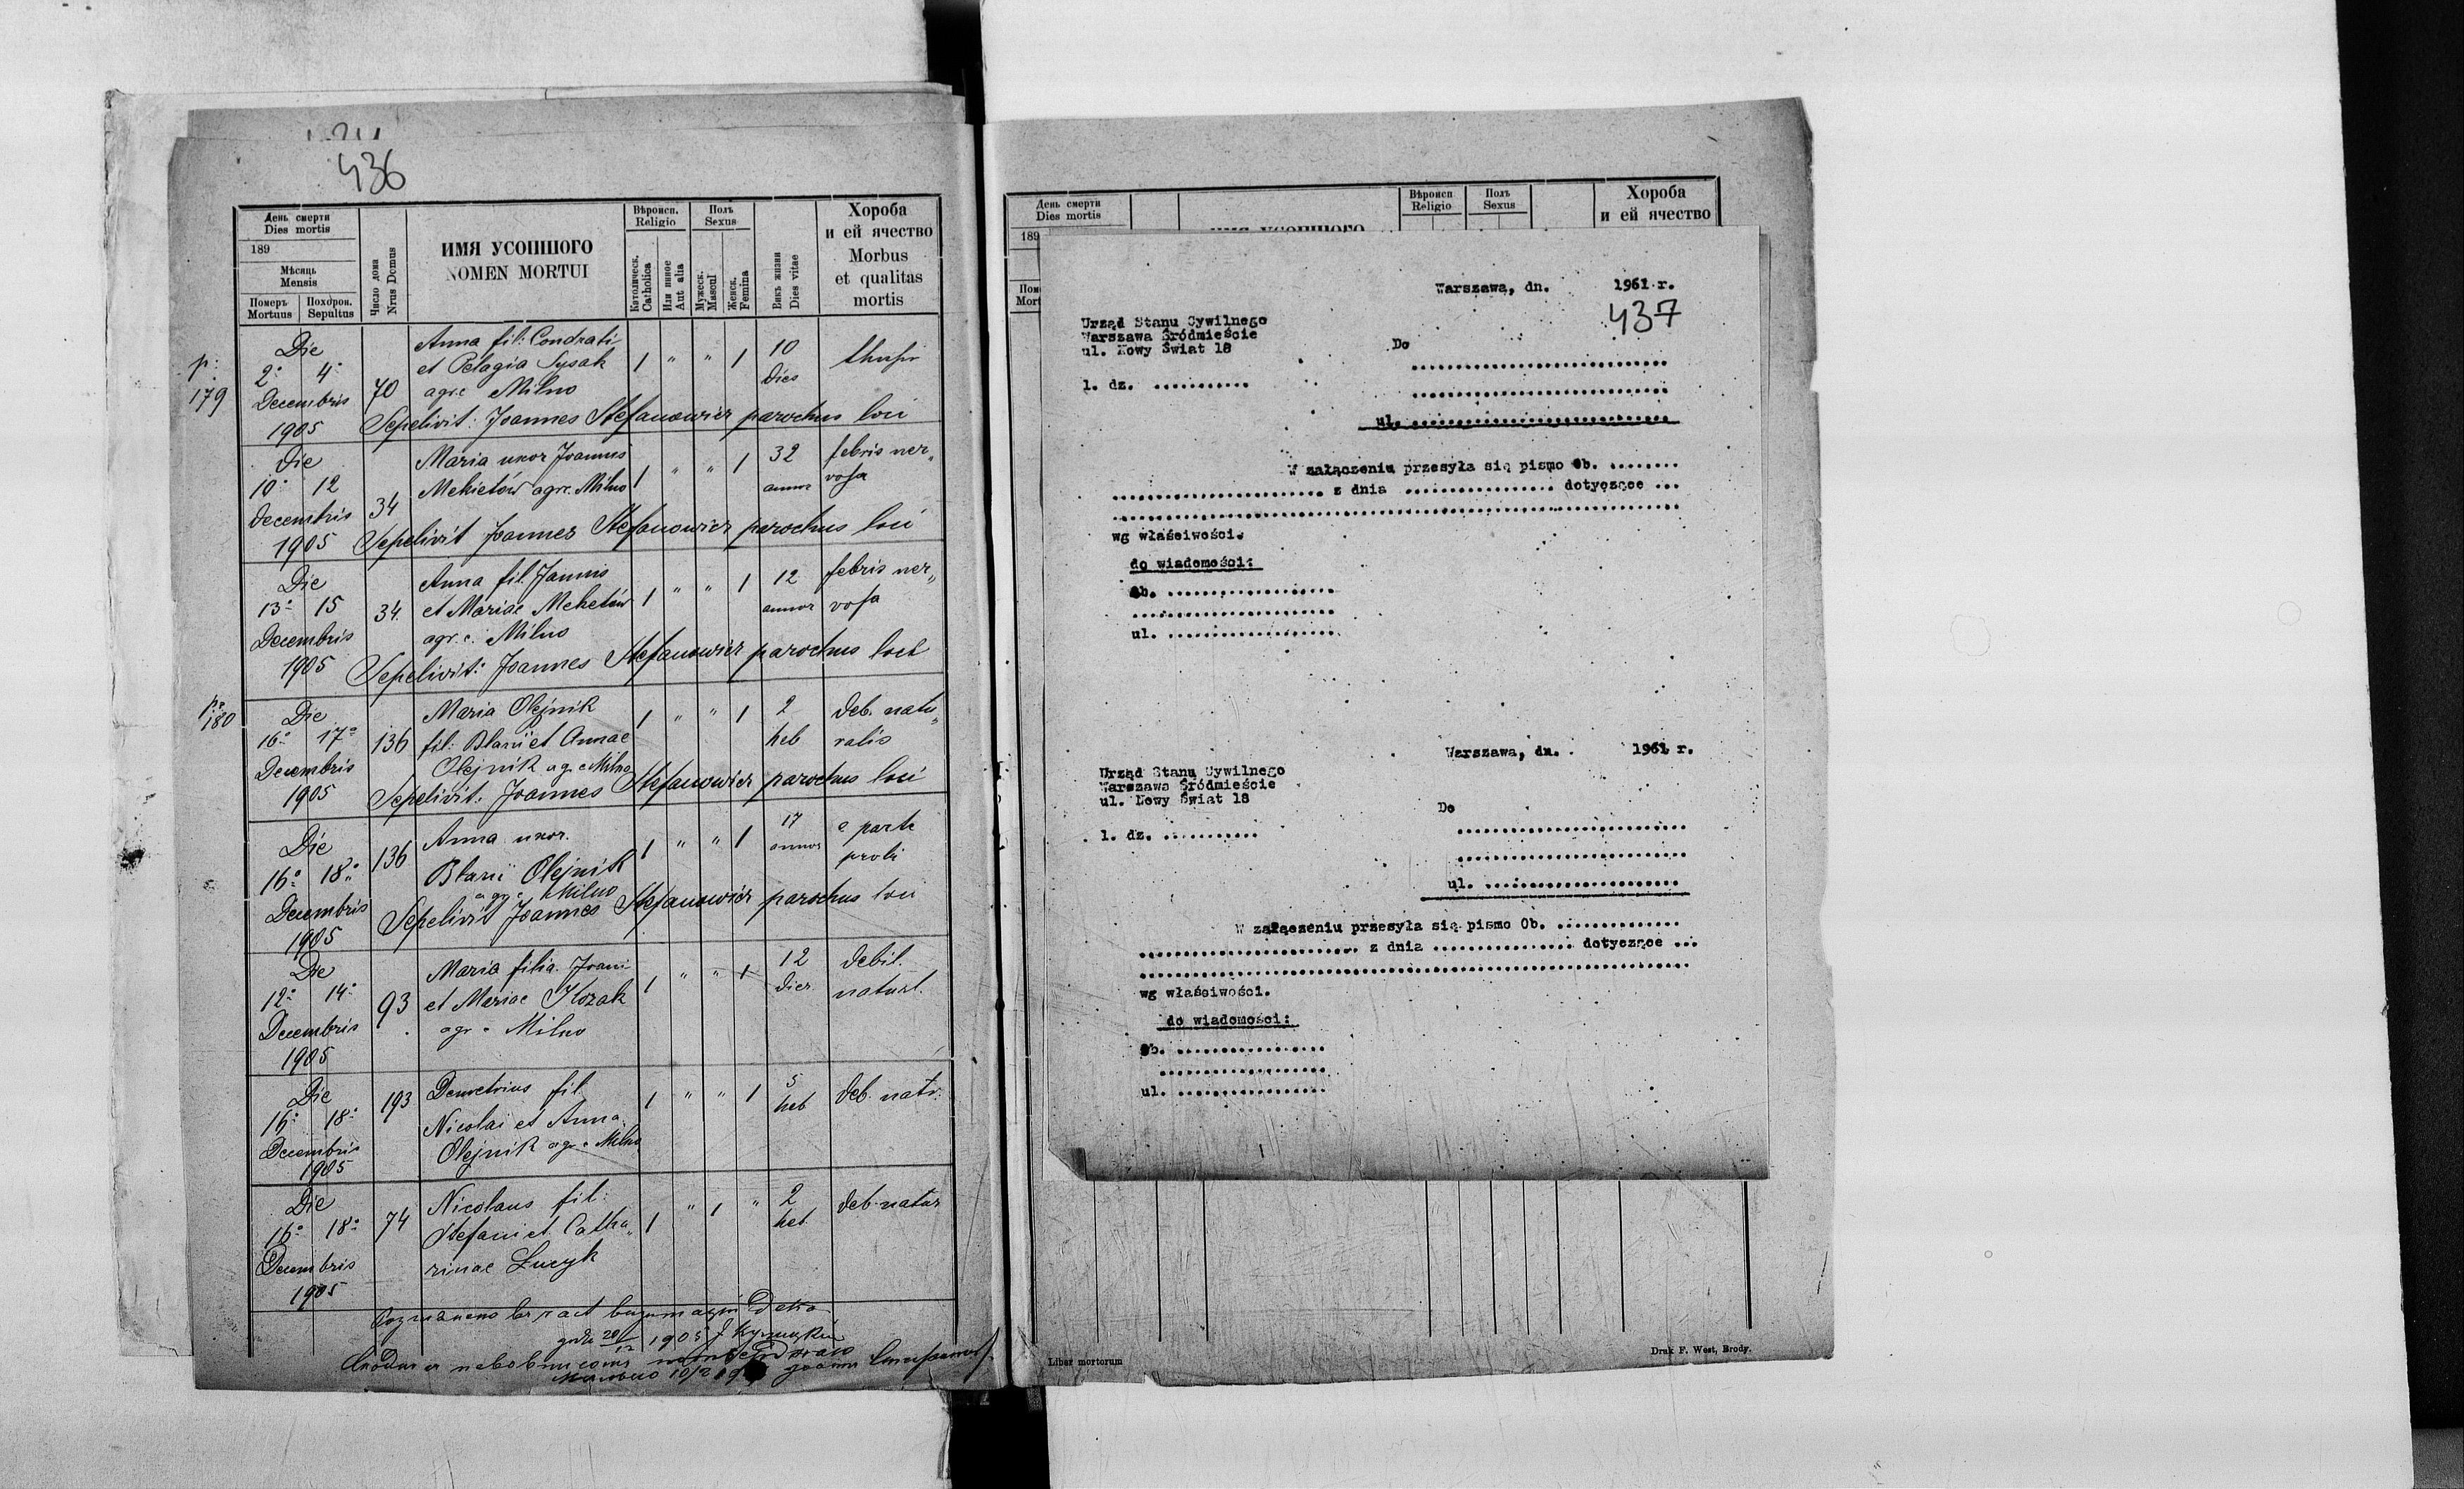 436
День смерти
Dies mortis
189
Мѣсяць
Mensis
Померъ
Mortuus
Похорон.
Sepultus
Число дома
Nrus Domus
ИМЯ УСОПШОГО
NOMEN MORTUI
Вѣроисп.
Religio
Католическ.
Catholica
Или инное
Aut alia
Полъ
Sexus
Мужеск.
Mascul
Женск.
Femina
Викъ жизни
Dies vitae
Хороба
и ей ячество
Morbus
et qualitas
mortis
p:
179
Die
2° 4°
Decembris
1905
70
Anna fil: Condrati
et Pelagia Sysak
agr.c Milno
1 " " 1
10
dies
Sepelivit: Joannes Stefanowicz parochus loci
Die
10° 12
Decembris
1905
34
Maria uxor Joannis
Mekietów agr.c. Milno
1 " " 1
32
annor
febris ner„
vosa
Sepelivit Joannes Stefanowicz parochus loci
Die
13° 15
Decembris
1905
34.
Anna fil. Joannis
et Mariae Meketów
agr. c. Milno
1 " " 1
12
annor
febris ner„
vosa
Sepelivit: Joannes Stefanowicz parochus loci
180
Die
16° 17°
Decembris
1905
136
Maria Olejnik
fil: Blasii et Annae
Olejnik agr c Milno
1 " " 1
2
heb
deb. natu„
ralis
Sepelivit: Joannes Stefanowicz parochus loci
Die
16° 18°
Decembris
1905
136
Anna uxor.
Blasii Olejnik
agr c Milno
1 " " 1
17
annor
e partu
Sepelivit Joannes Stefanowicz parochus loci
Die
12° 14°
Decembris
1905
93
Maria filia. Joani
et Mariae
agr c Milno
1 " " 1
12
dier.
debil.
naturl.
Die
16° 18°
Decembris
1905
193
Demetrius fil
Nicolai et Anna
Olejnik agr c Milno
1 " " 1
5
heb
deb. natr.
Die
16° 18°
Decembris
1905
74
Nicolaus fil:
Stefani et. Catha„
rinae Lucyk
1 " 1 "
2
heb
deb. natur
1905
День смерти
Dies mortis
189
Вѣроисп
Religio
Полъ
Sexus
Хороба
и ей ячество
Warszawa, dn. 1961 r.
437
Urząd Stanu Cywilnego
Warszawa Śródmieście
ul. Nowy Świat 18
Do
l. dz. ...........
............................
............................
ul. ............................
W załączeniu przesyła się pismo Ob. ........
....................... z dnia ................. dotyczące ...
..............................................................
wg właściwości.
do wiadomości:
Ob. ...................
......................
ul. ...................
Warszawa, dn. 1961 r.
Urząd Stanu Cywilnego
Warszawa Śródmieście
ul. Nowy Świat 18
Do
l. dz. ...........
.........................
.........................
ul. .....................
W załączeniu przesyła się pismo Ob. ..............
........................ z dnia ................ dotyczące ...
............................................................
wg właściwości.
do wiadomości:
Ob. .................
...................
ul. .................
Liber mortorum
Druk F. West, Brody.